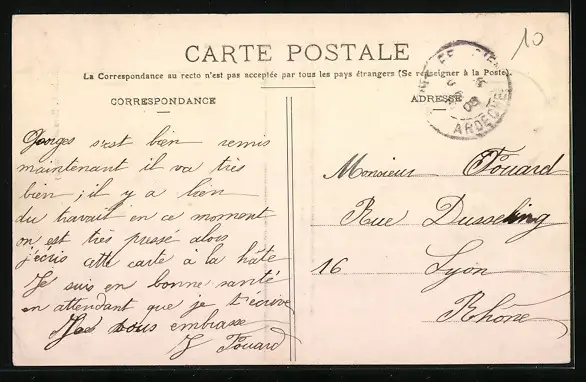 10
CARTE POSTALE
La Correspondance au recto n'est pas acceptée par tous les pays étrangers (Se renseigner à la Poste).
CORRESPONDANCE
ADRESSE
ARDECHE
Georges s'est bien remis
maintenant il va très
bien ; il y a bien
du travail en ce moment
on est très pressé alors
j'écris cette carte à la hâte
Je suis en bonne santé
en attendant que je t'écrive
vous embrasse
J Pouard
Monsieur Pouard
Rue
16 Lyon
Rhône